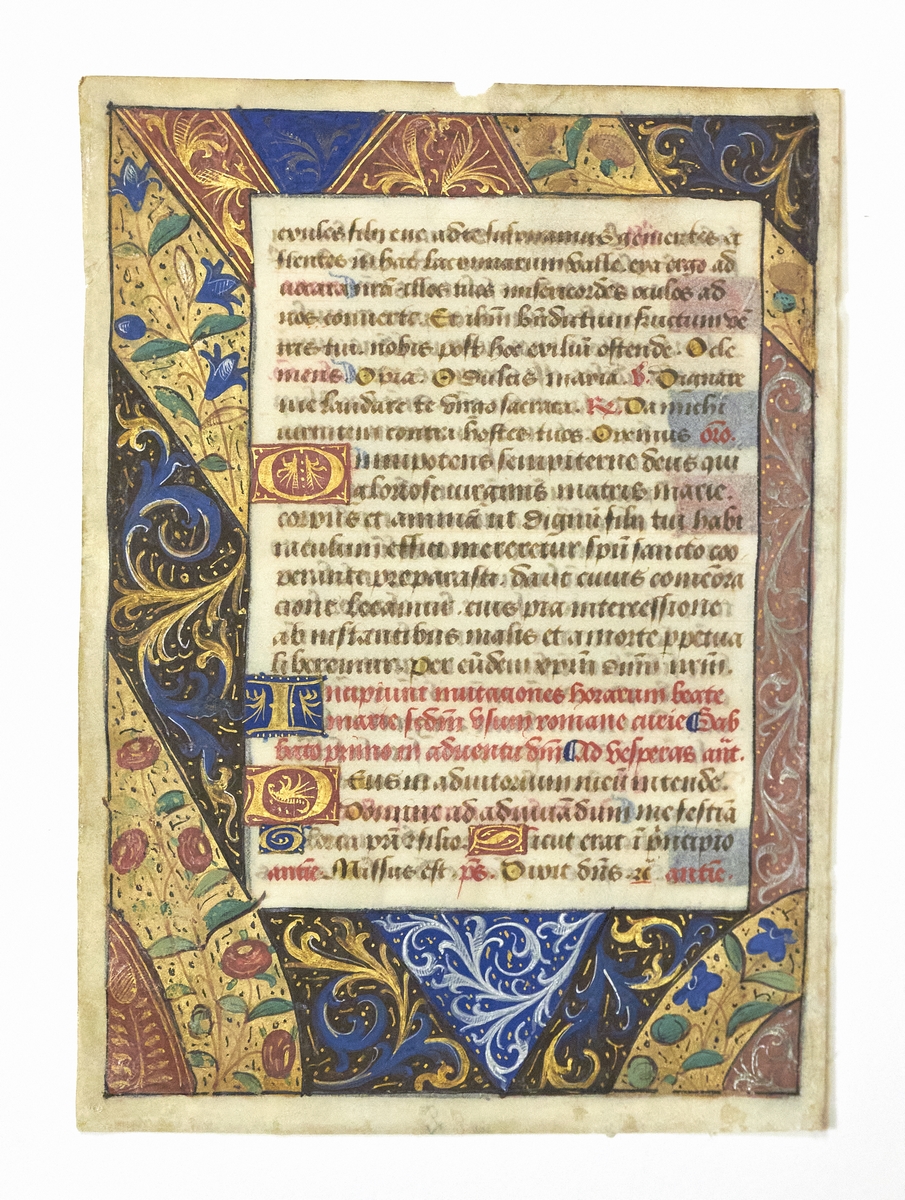 exules filij eue. ad te suspiramus gementes et
flentes in hac lacrimarum valle. eya ergo ad
uocata nrã illos tuos misericordes oculos ad
nos conuerte. Et ihm̃ bñdictum fructum vẽ
tris tui. nobis post hoc exiliũ ostende. O cle
mens O pia. O dulcis maria. v. Dignare
me laudare te virgo sacrata. Rx. Da michi
uirtutem contra hostes tuos. Oremus oro.
Omnipotens sempiterne deus qui
gloriose uirginis matris marie.
corpus et animã ut dignũ filij tui habi
taculum effici mereretur spũ sancto coo
perante preparasti. da ut cuius comẽora
cione letamur. eius pia intercessione
ab instantibus malis et a morte ppetua
liberemur. Per eũdem xpm̃ dnm̃ nrm̃.
Incipiunt mutaciones horarum beate
marie scdm̃ vsum romane curie Sab
bato primo in aduentu dnĩ Ad vesperas añt.
Deus in adiutorium meũ intende.
Domine ad adiuuãdum me festiã
Gloria prĩ et filio. Sicut erat ĩ pñcipio
antie. Missus est. ps. Dixit dñs. antie.